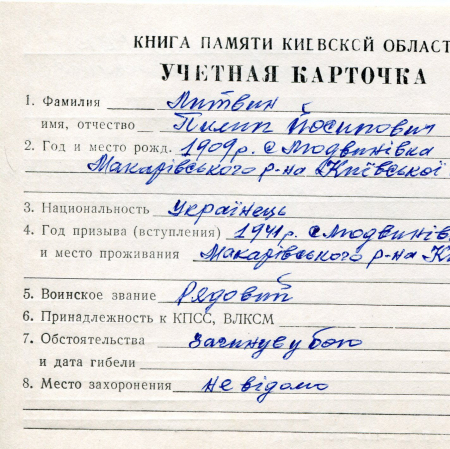 КНИГА ПАМЯТИ КИЕВСКОЙ ОБЛАСТ
УЧЕТНАЯ КАРТОЧКА
1. Фамилия Литвин
имя, отчество Пилип Йосипович
2. Год и место рожд. 1909р. с Людвинівка
Макарівського р-на Київської
3. Национальность Українець
4. Год призыва (вступления) 1941р. с Людвинів
и место проживания Макарівського р-на К
5. Воинское звание Рядовий
6. Принадлежность к КПСС, ВЛКСМ
7. Обстоятельства Загинув у бою
и дата гибели
8. Место захоронения не відомо